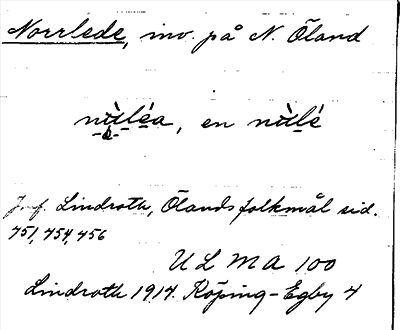 Norrlede, inv. på N. Öland
nùl̀éa, en nùlé
Jmf. Lindroth, Ölands folkmål sid.
751, 754, 756
ULMA 100
Lindroth 1914. Köping-Egby 4